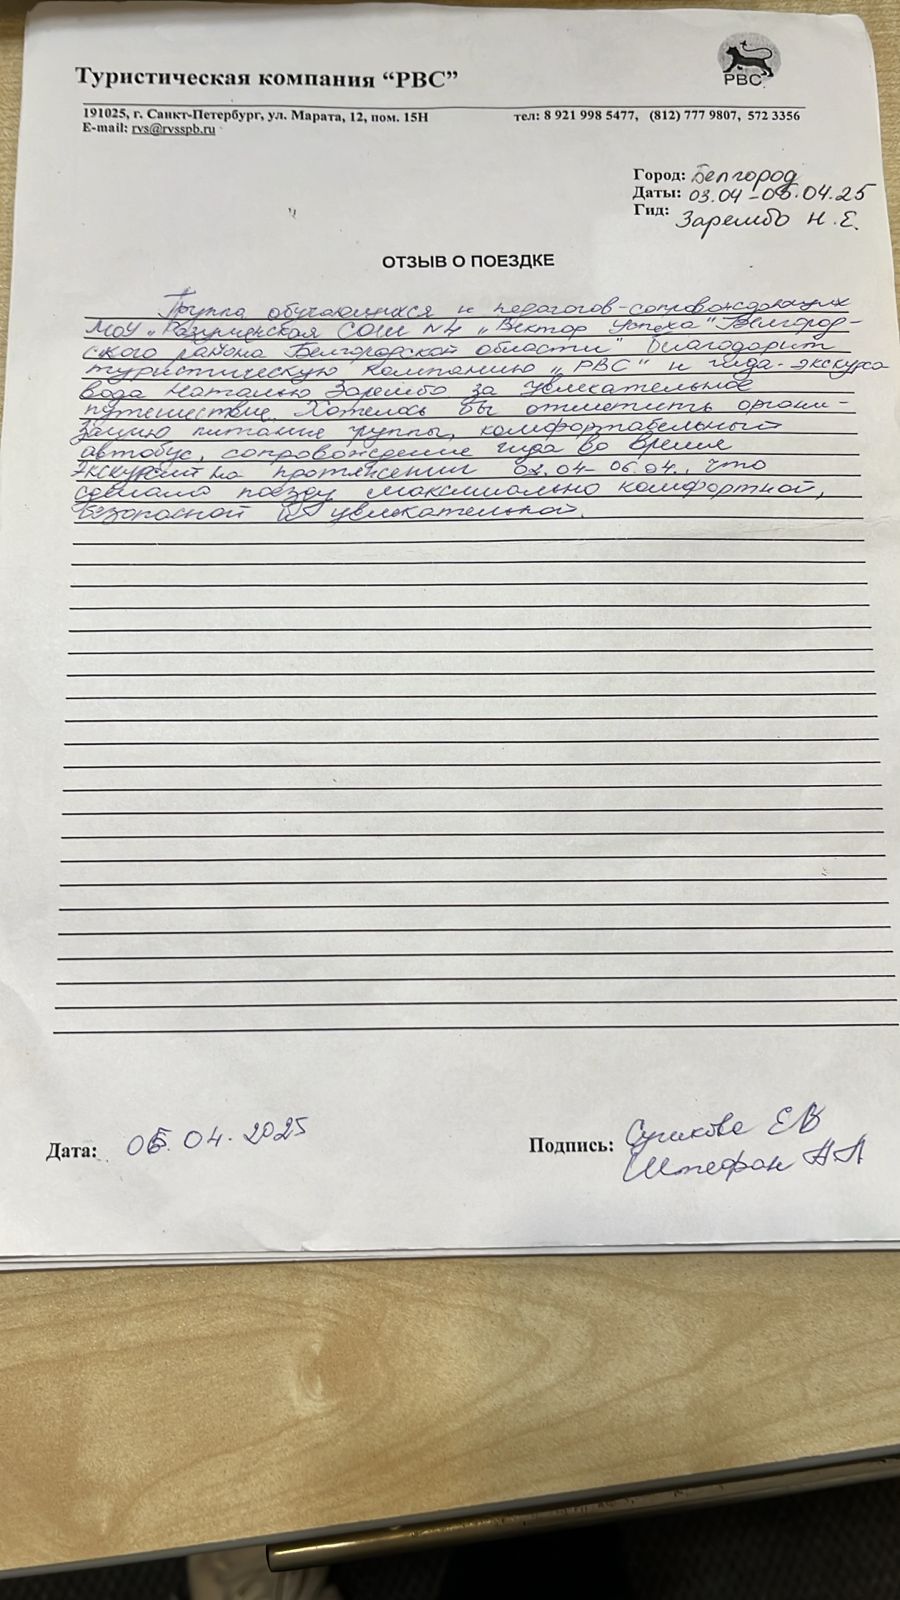 Туристическая компания “РВС”
РВС
191025, г. Санкт-Петербург, ул. Марата, 12, пом. 15Н
тел: 8 921 998 5477, (812) 777 9807, 572 3356
E-mail: rvs@rvsspb.ru
Город: Белгород
Даты: 03.04 - 06.04.25
Гид: Зарембо Н.Е.
ОТЗЫВ О ПОЕЗДКЕ
Группа обучающихся и педагогов-сопровождающих
МОУ „Разуменская СОШ №4 „Вектор Успеха" Белгород-
ского района Белгородской области" благодарит
туристическую компанию „РВС" и гида-экскурсо
вода Наталью Зарембо за увлекательное
путешествие. Хотелось бы отметить органи-
зацию питание группы, комфортабельный
автобус, сопровождение гида во время
экскурсий на протяжении 02.04- 06.04., что
сделало поезду максимально комфортной,
безопасной и увлекательной.
Дата: 06.04.2025
Подпись: ЕВ
Штефан